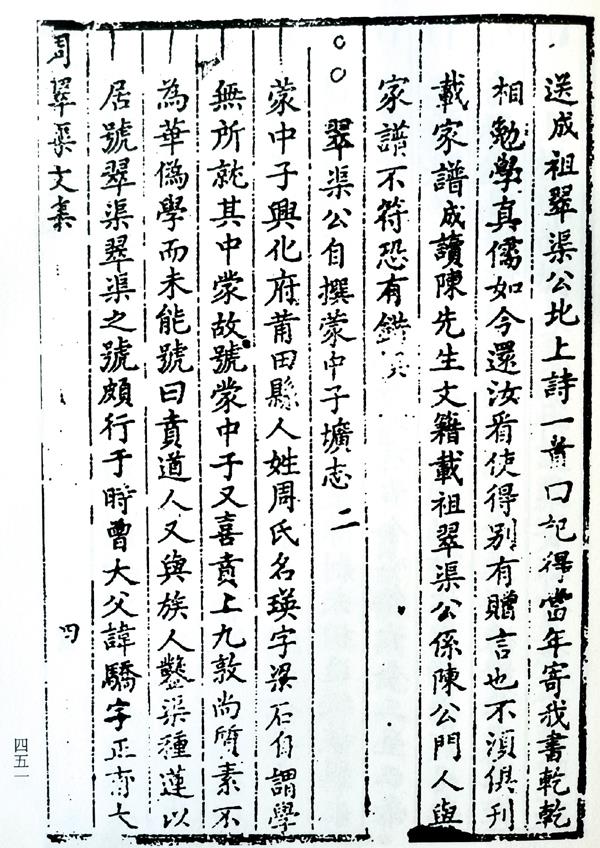 送成祖翠渠公北上詩一首曰記得當年寄我書乾乾
相勉學真儒如今還汝看使得別有贈言也不須俱刊
載家譜成讀陳先生文籍載祖翠渠公係陳公門人與
家譜不符恐有錯誤
○○翠渠公自撰蒙中子壙志二
蒙中子興化府莆田縣人姓周氏名瑛字梁石自謂學
無所就其中蒙故號蒙中子又喜賁上九敦尚質素不
為華僞學而未能號曰賁道人又與族人鑿渠種蓮以
居號翠渠翠渠之號頗行于時曾大父諱驕字正齋大
周翠渠文集
四
四五一